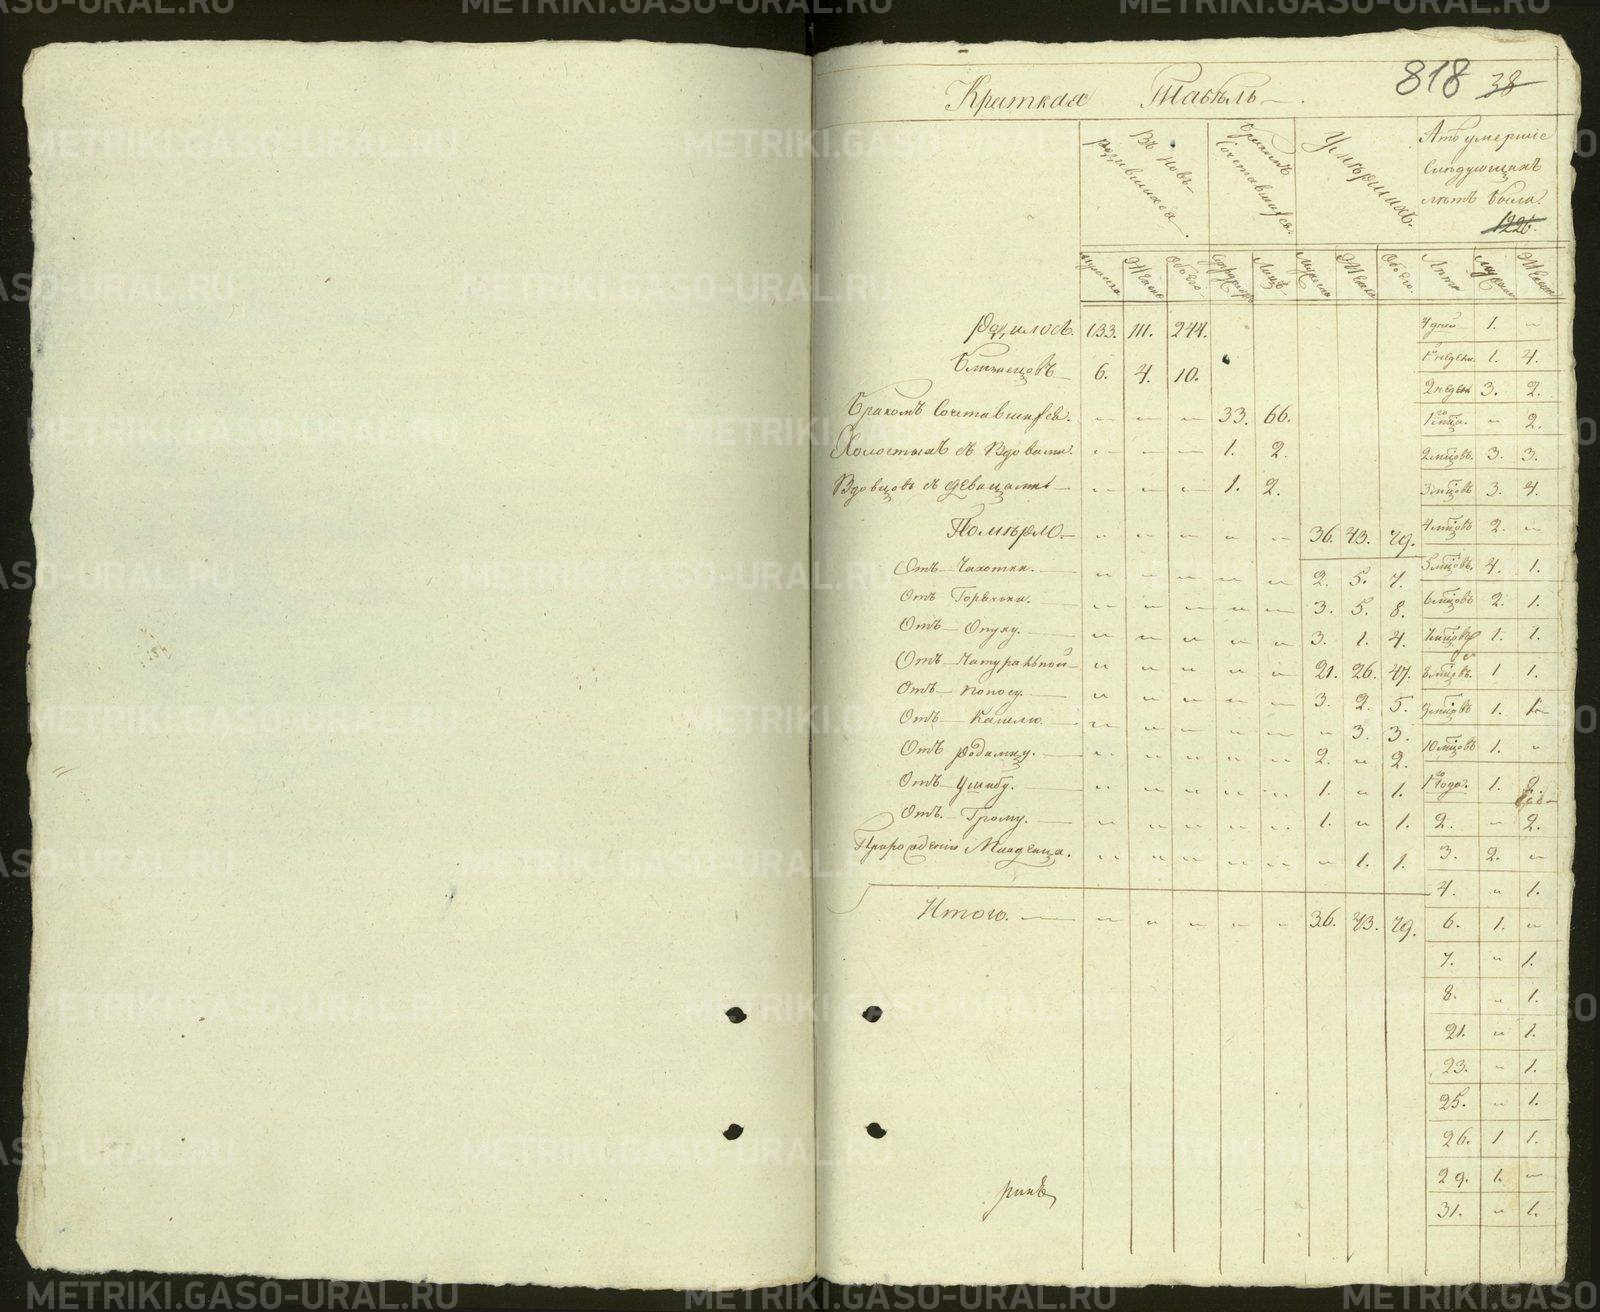 818 38
Краткая Табель
Въ новь родившихся.
Бракомъ Сочетавшихся.
Умершихъ.
Лѣта умершіе
слѣдующихъ
лѣтъ было.
1226.
Мужеска Женска Обоего Лицъ Мужеска Женска Обоего. Лѣта Мужеска Женска
Родилось. 133. 111. 244. 4 дней 1. „
Близнецовъ 6. 4. 10. 1й недели 1. 4.
2 недел 3. 2.
Бракомъ Сочетавшихся. „ „ „ 33. 66. 1го мца. „ 2.
Холостыхъ съ Вдовами. „ „ „ 1. 2. 2 мцовъ. 3. 3.
Вдовцовъ съ девицами „ „ „ 1. 2. 3 мцовъ 3. 4.
Померло. „ „ „ „ „ 36. 43. 79. 4 мцовъ 2. „
Отъ Чахотки. „ „ „ „ „ 2. 5. 7. 5 мцовъ. 4. 1.
Отъ Горячки. „ „ „ „ „ 3. 5. 8. 6 мцовъ 2. 1.
Отъ Опуху. „ „ „ „ „ 3. 1. 4. 7 мцовъ 1. 1.
Отъ Натуральной „ „ „ „ „ 21. 26. 47. 8 мцовъ. 1 1.
Отъ поносу. „ „ „ „ „ 3. 2. 5. 9 мцовъ 1. 1.
Отъ Кашлю. „ „ „ „ „ „ 3. 3. 10 мцовъ 1. „
Отъ родимцу. „ „ „ „ „ 2. „ 2.
Отъ Ушибу. „ „ „ „ „ 1. „ 1. 1го года. 1. 2.
Отъ Грому. „ „ „ „ „ 1. „ 1. 2. „ 2.
Прирождении Младенца. „ „ „ „ „ „ 1. 1. 3. 2. „
4. „ 1.
Итого. „ „ „ „ „ 36. 43. 79. 6. 1. „
7. „ 1.
8. „ 1.
21. „ 1.
23. „ 1.
25. „ 1.
26. 1 1.
29. 1. „
31. „ 1.
METRIKI.GASO-URAL.RU